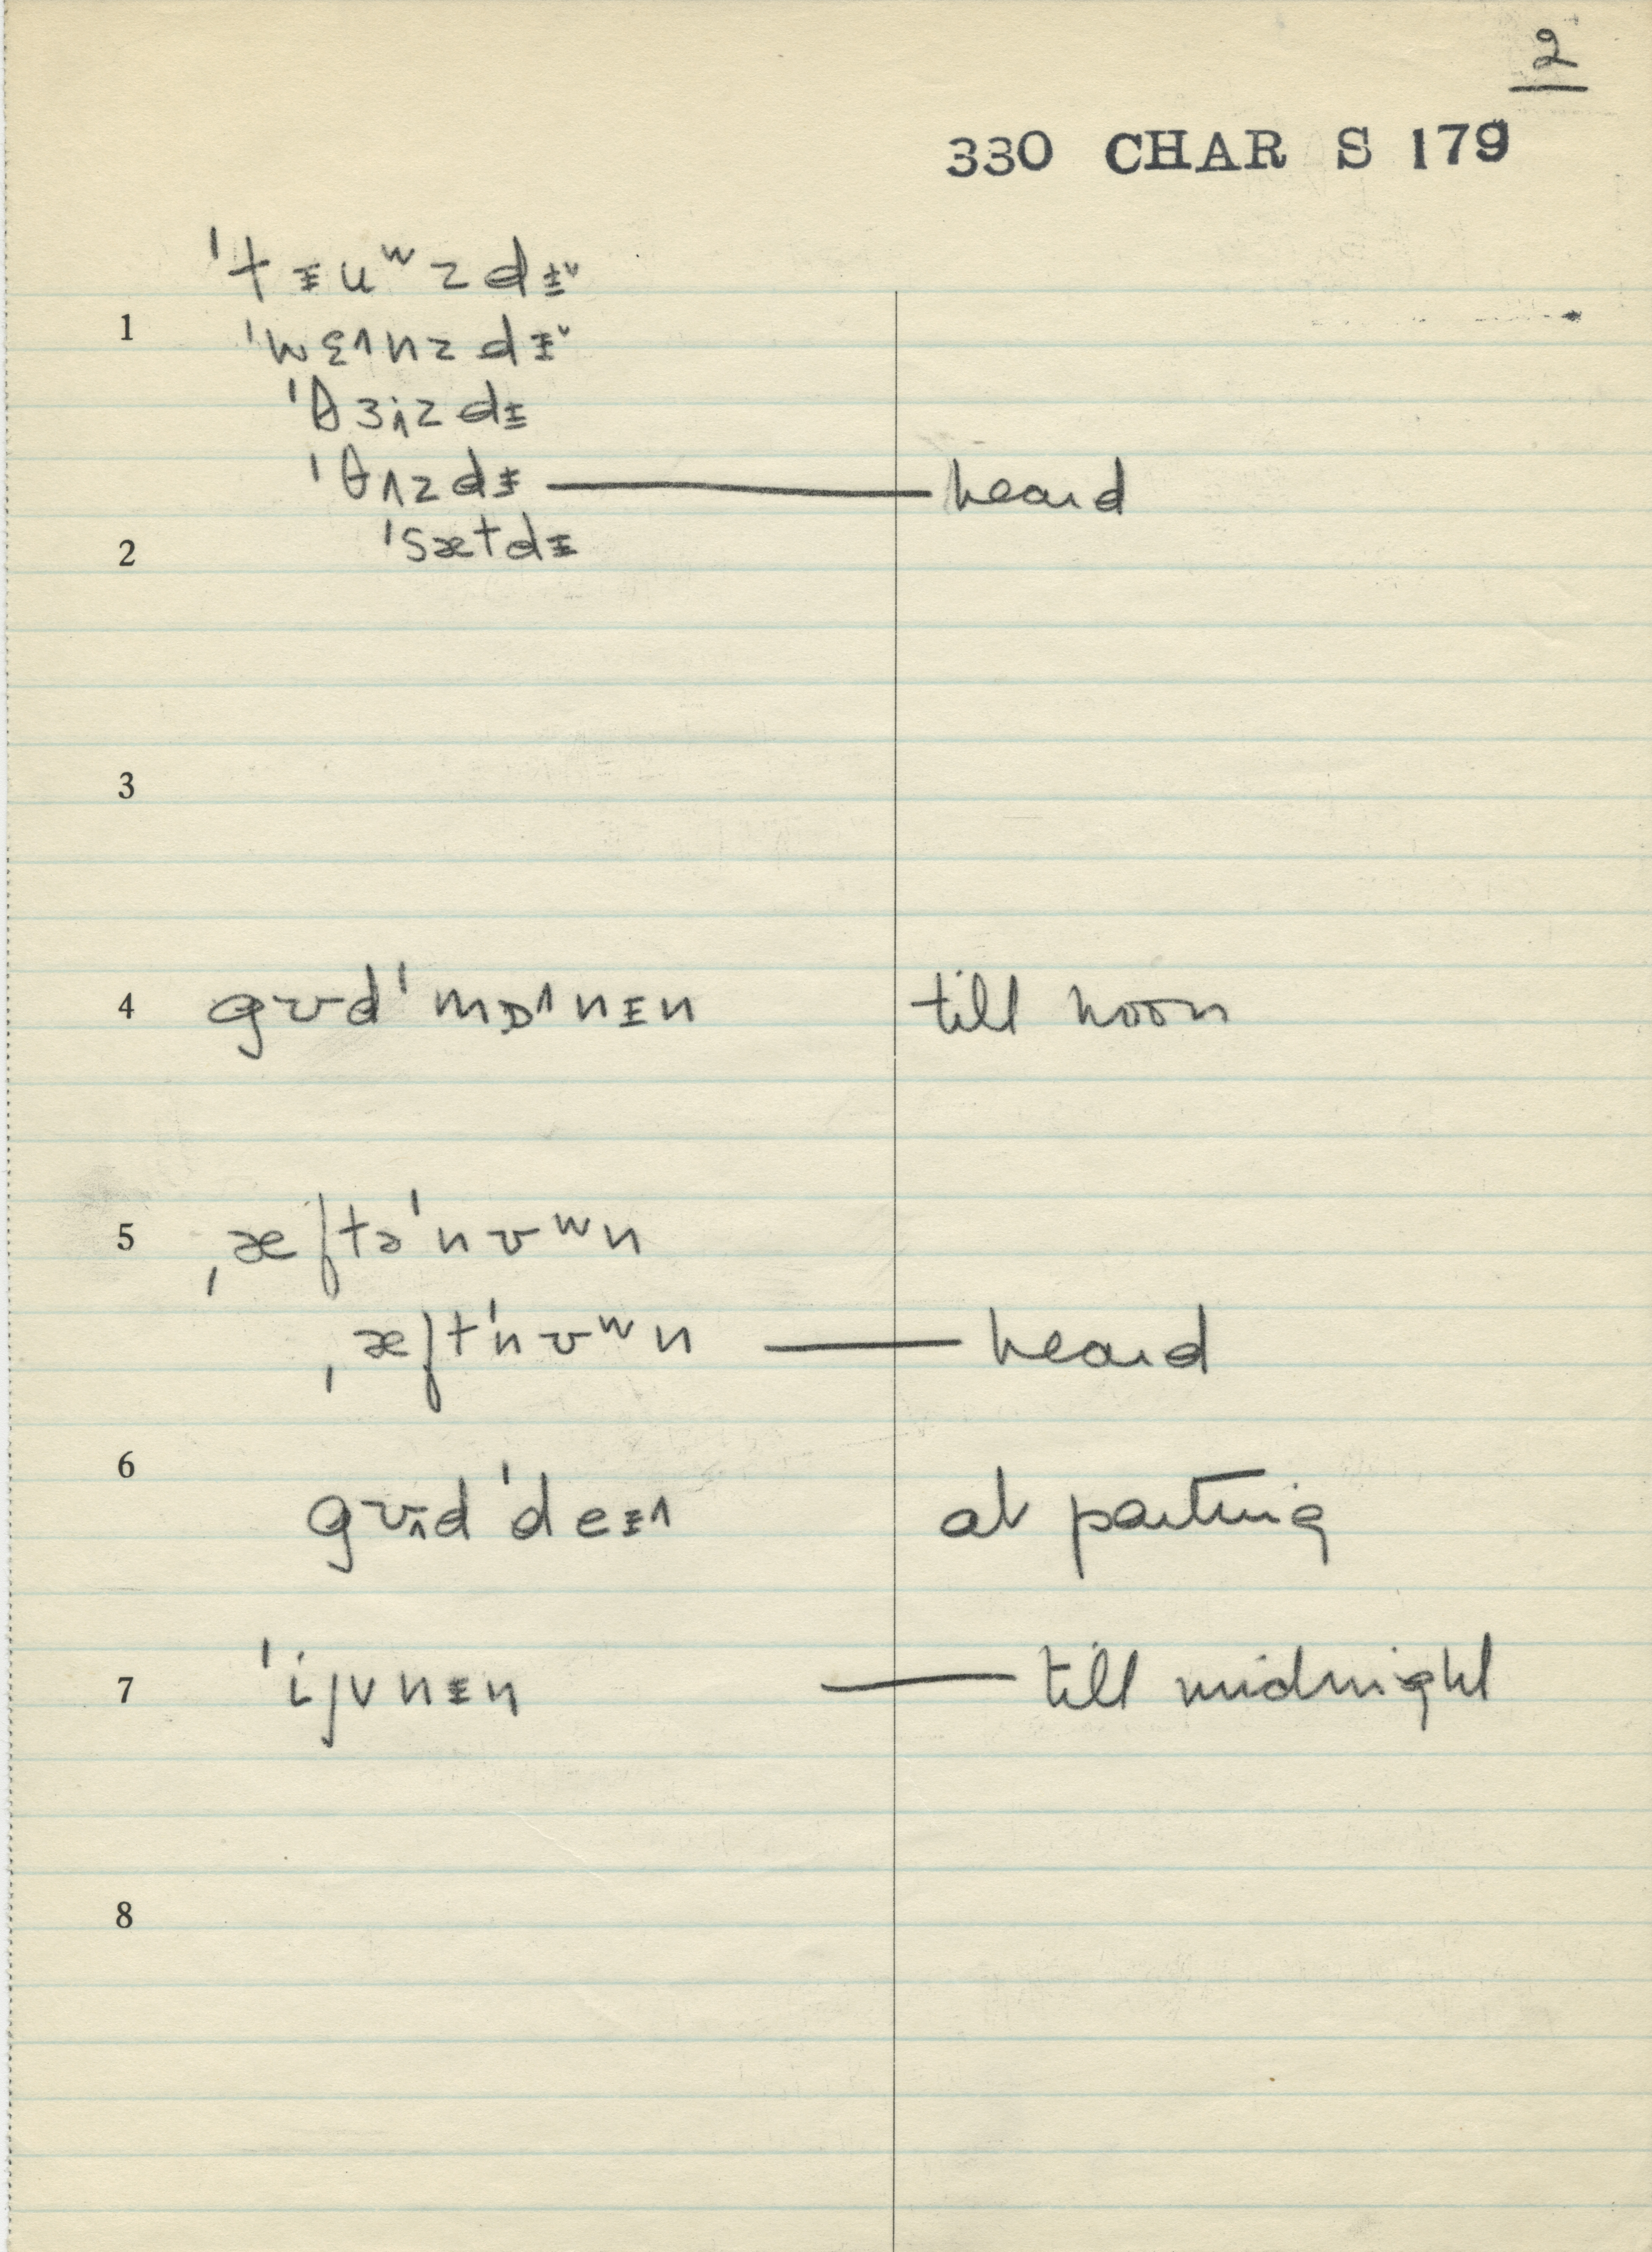 2
330 CHAR S 179
ˈtᵻuʷzdᵻ˅
1 ˈwɛ˄nzdᵻ˅
ˈθɜ˄zdᵻ
ˈθʌzdᵻ — heard
2 ˈsætdᵻ
3
4 gʊdˈmɒ˄nᵻn till noon
5 ˌæftəˈnʊʷn
ˌæftˈnʊʷn — heard
6 gʊ˄dˈdeᵻ˄ at parting
7 ˈijvnᵻn — till midnight
8